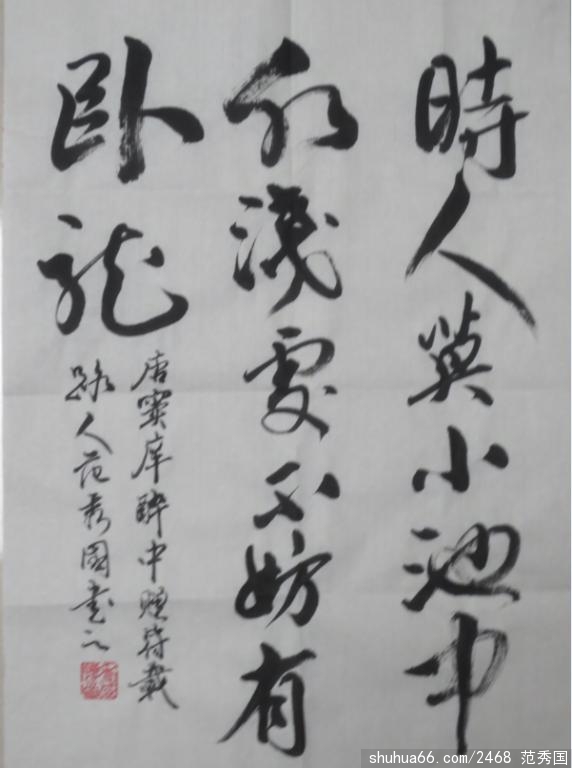 時人莫小池中
水淺處不妨有
卧龍
唐寳庠醉中贈符載
路人范秀國書之
shuhua66.com/2468 范秀国